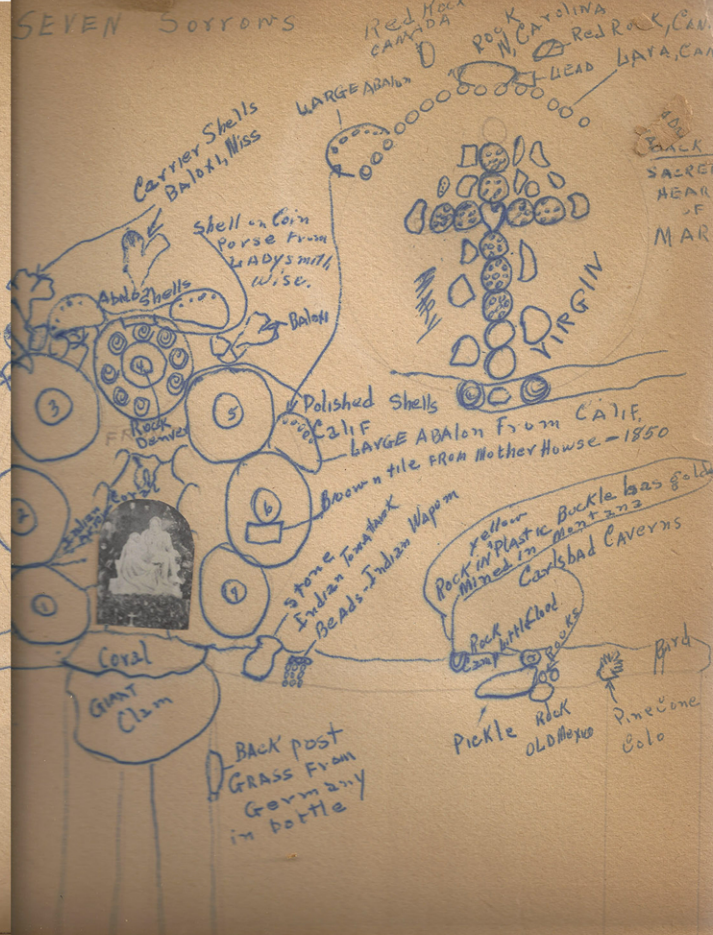 SEVEN Sorrows
Red Rock
CANADA
ROCK
N, CAROLINA
Red Rock, CAN.
LEAD
LAVA, CAN
LARGE ABALON
Carrier Shells
BALOXI, Miss
BACK
SACRE
HEAR
OF
MAR
Shell on Coin
Porse From
LADYsmith,
Wise.
Abalo Shells
Baloxi
VIRGIN
3
5
Rock
Denver
Polished Shells
Calif
LARGE ABAlon From CALIF,
Brown tile FROM Mother Howse - 1850
2
6
Coral
1
7
Stone
Indian Tomahawk
Beads - Indian Wapom
yellow
ROCK IN PLASTIC Buckle has gold
Mined in Montana
Carlsbad Caverns
Rock
Camp Little Cloud
ROCKS
Bird
Coral
GIANT
Clam
Pickle
Rock
OLD Mexico
Pine Cone
Colo
BACK post
GRASS From
Germany
in bottle